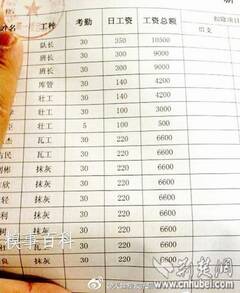 工种 考勤 日工资 工资总额 扣除项目
借支
队长 30 350 10500
班长 30 300 9000
班长 30 300 9000
库管 30 140 4200
壮工 30 140 4200
壮工 30 100 3000
壮工 5 100 500
杰 瓦工 30 220 6600
民 瓦工 30 220 6600
彬 抹灰 30 220 6600
欣 抹灰 30 220 6600
轻 抹灰 30 220 6600
利 抹灰 30 220 6600
树 抹灰 30 220 6600
抹灰 30 220 6600
良 抹灰 30 220 6600
糗事百科
荆楚网
www.cnhubei.com